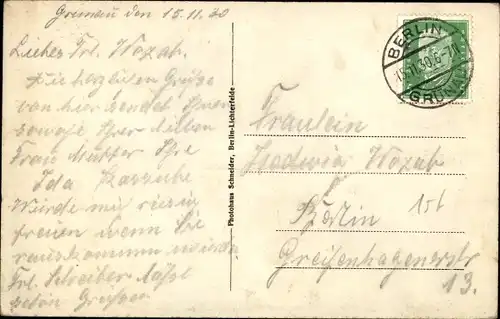 Grünau den 15.11.30
Liebes Frl. Wozab.
Die herzlichen Grüße
von hier sendet Ihnen
sowie Ihrer lieben
Frau Mutter Ihre
Ida
Würde mich riesig
freuen wenn Sie
rauskommen würden
Frl. Schreiber lässt
schön Grüssen
Photohaus Schneider, Berlin-Lichterfelde
BERLIN
15.11.30.6-7N
GRÜNAU
Fräulein
Hedwig Wozab
Berlin
Greifenhagenerstr
13.